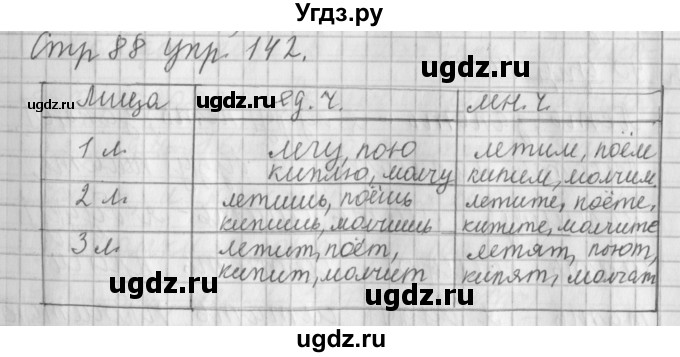 Угдз.ру
Стр 88 упр 142.
ugdz.ru
Лица ед. ч. мн. ч.
ugdz.ru ugdz.ru ugdz.ru
1 л. легу, пою летим, поём
киплю, молчу кипим, молчим
2 л. летишь, поёшь летите, поёте,
кипишь, молчишь кипите, молчите
3 л. летит, поёт, летят, поют,
кипит, молчит кипят, молчат
ugdz.ru ugdz.ru
ugdz.ru
ugdz.ru
ugdz.ru
ugdz.ru